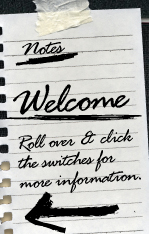 Notes
Welcome
Roll over & click
the switches for
more information.